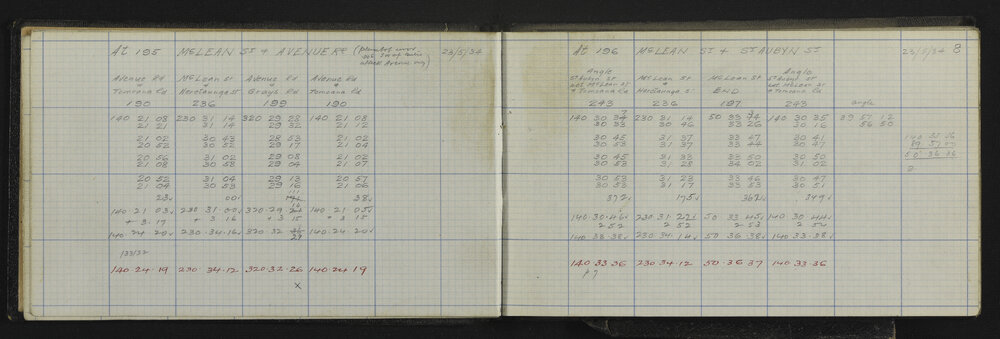 At 195 McLEAN ST + AVENUE RD 23/5/34
Avenue Rd McLean St Avenue Rd Avenue Rd
+ + + +
Tomoana Rd Heretaunga St Grays Rd Tomoana Rd
190 236 199 190
140 21 08 230 31 14 320 29 28 140 21 08
21 21 31 14 29 32 21 12
21 02 30 43 28 53 21 02
20 52 30 52 29 17 21 04
20 56 31 02 29 08 21 02
21 08 30 58 29 04 21 07
20 52 31 04 29 13 20 57
21 04 30 53 29 16 21 06
140.21 03 230.31.00 320.29 140.21 05
+ 3.17 + 3 16 + 3 15 + 3 15
140.24 20 230.34.16 320.32 29 140.24 20
133/32
140.24.19 230.34.12 320.32.26 140.24 19
x
At 196 McLEAN ST + ST AUBYN ST 23/5/34 8
Angle McLean St McLean St Angle
St Aubyn St + END St Aubyn St
+ Tomoana Rd Heretaunga S. + Tomoana Rd
243 236 197 243 angle
140 30 230 31 14 50 33 140 30 35 89 57 12
30 33 30 46 33 26 30 16 56 50
30 45 31 37 33 47 30 41
30 53 31 37 33 44 30 47
30 45 31 33 33 50 30 50
30 53 31 28 34 02 31 02
30 53 31 23 33 46 30 47
30 53 31 17 33 53 30 51
372 175 362 349
140.30.46 230.31.22 50 33 45 140 30 44
2 52 2 52 2 53 2 54
140 33.38 230.34.14 50 36.38 140.33.38
140 33 36 230 34.12 50.36.37 140.33.36
140 33 36
89 57 00
50 36 36